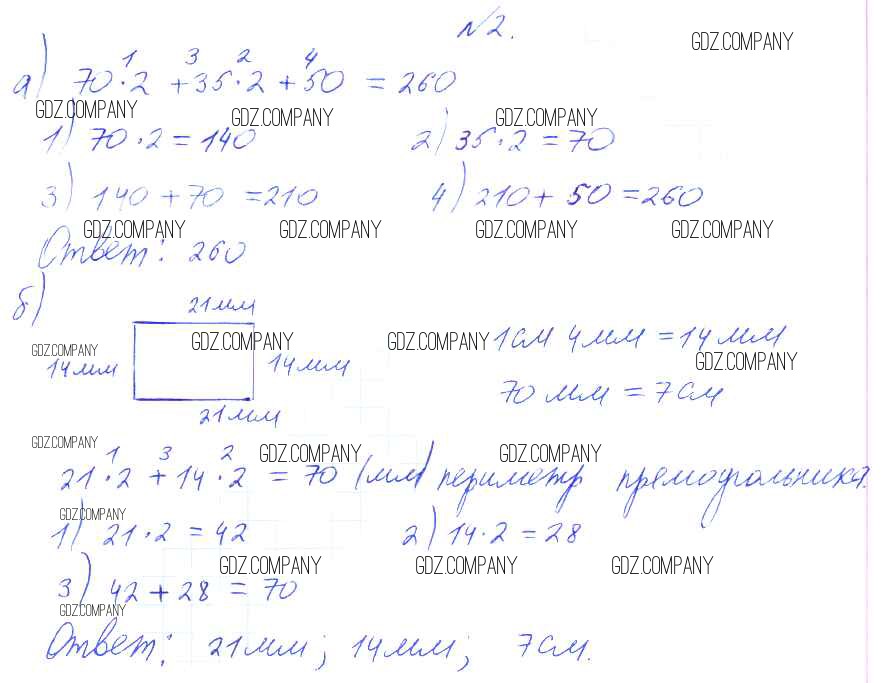 №2.
GDZ.COMPANY
1 3 2 4
а) 70·2 +35·2 +50 = 260
GDZ.COMPANY GDZ.COMPANY GDZ.COMPANY
1) 70·2 = 140 2) 35·2 = 70
3) 140 + 70 = 210 4) 210 + 50 = 260
GDZ.COMPANY GDZ.COMPANY GDZ.COMPANY GDZ.COMPANY
Ответ: 260
б)
21мм
GDZ.COMPANY GDZ.COMPANY 1см 4мм = 14мм
GDZ.COMPANY GDZ.COMPANY
14мм 14мм
70 мм = 7см
21мм
GDZ.COMPANY GDZ.COMPANY GDZ.COMPANY
1 3 2
21·2 + 14·2 = 70 (мм) периметр прямоугольника.
GDZ.COMPANY
1) 21·2 = 42 2) 14·2 = 28
GDZ.COMPANY GDZ.COMPANY GDZ.COMPANY
3) 42 + 28 = 70
GDZ.COMPANY
Ответ: 21мм; 14мм; 7см.